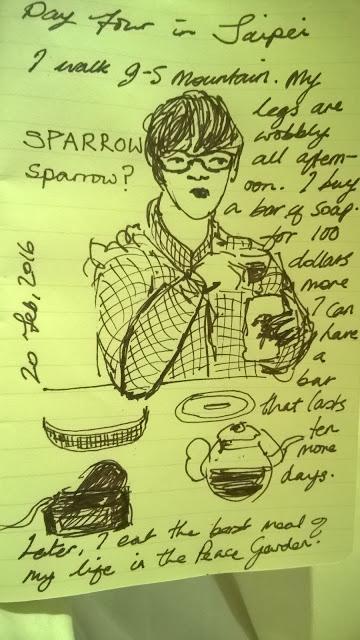 Day Four in Taipei
I walk 9-5 Mountain. My
legs are
wobbly
all aftern-
oon. I buy
a bar of soap.
for 100
dollars
more
I can
have
a
bar
that lasts
ten
more
days.
SPARROW
Sparrow?
20 Feb, 2016
Later, I eat the best meal of
my life in the Peace Garden.